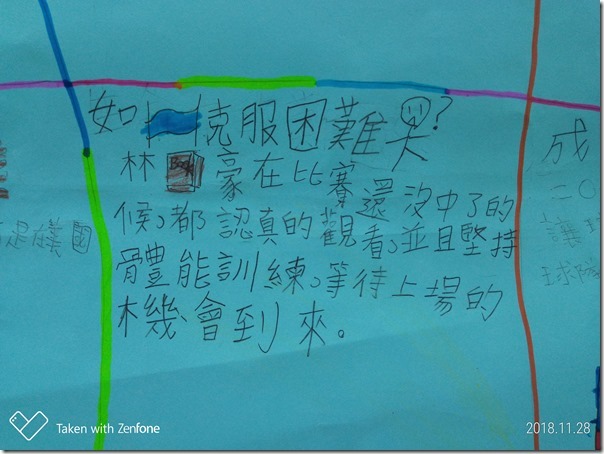 如克服困難?
林Book豪在比賽還沒中了的
候,都認真的觀看,並且堅持
體能訓練,等待上場的
機會到來。
是在美國
成
二〇
讓
球隊
Taken with Zenfone
2018.11.28